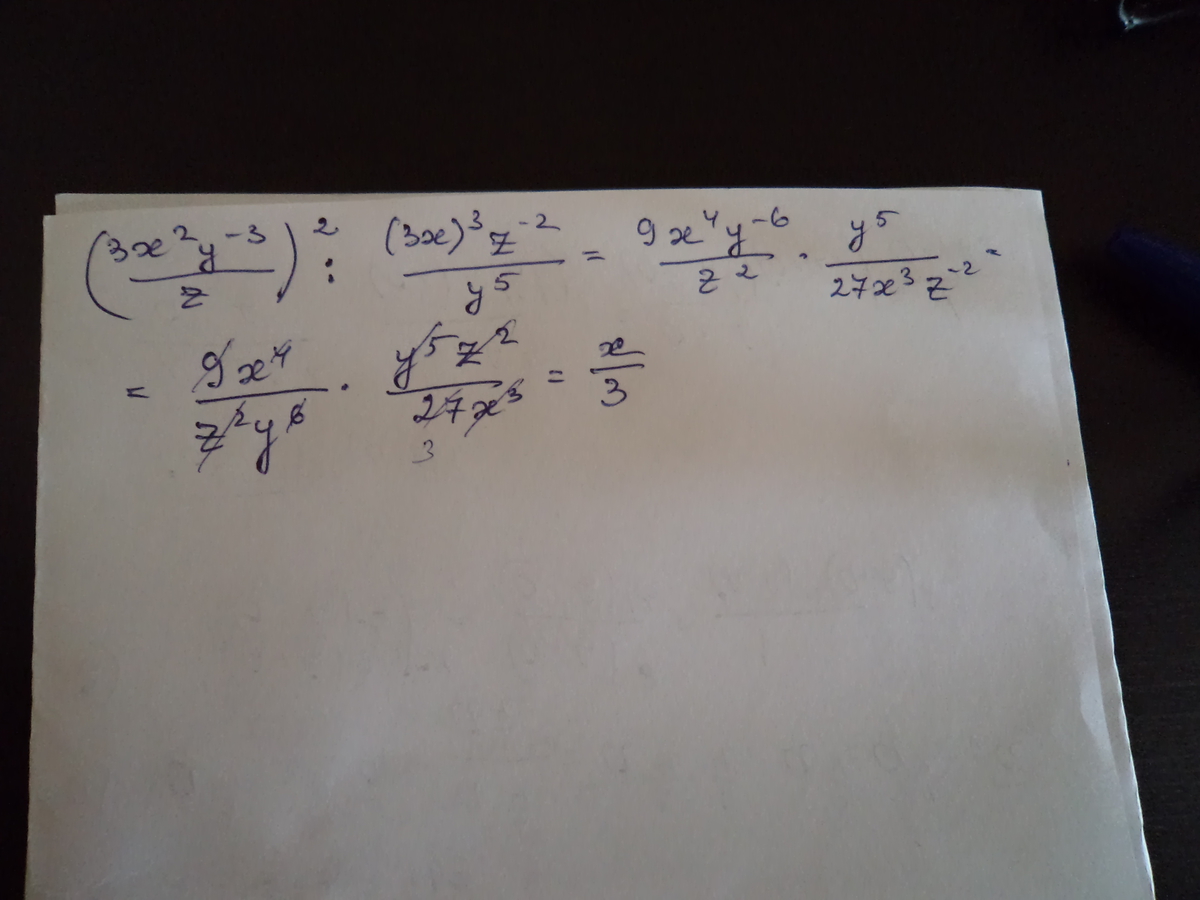 (3x²y⁻³/z)² : (3x)³z⁻²/y⁵ = 9x⁴y⁻⁶/z² · y⁵/27x³z⁻² =
= 9x⁴/z²y⁶ · y⁵z²/27x³ = x/3
3